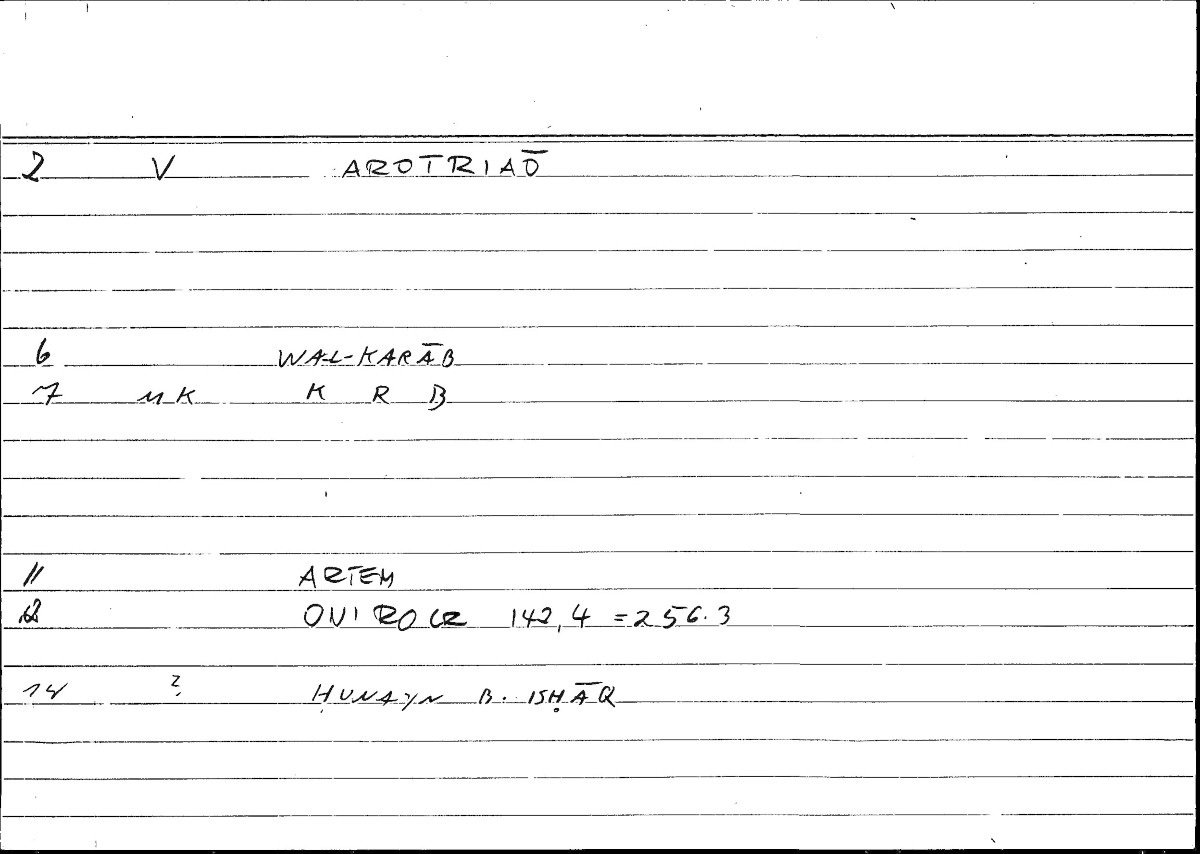 2 V AROTRIAŌ
6 WAL-KARĀB
7 MK K R B
11 ARTEM
12 ONIROCR 142,4 = 256.3
14 ? ḤUNAYN B. ISḤĀQ